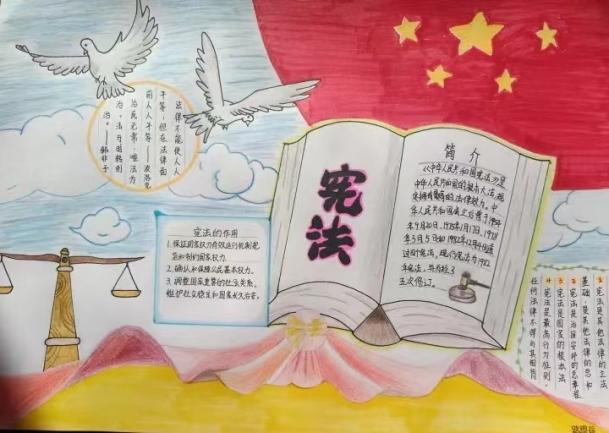 法律不能使人人
平等,但在法律面
前人人平等——波洛克
治民无常,唯法为
治。法与时转则
治。——韩非子
宪法
简介
《中华人民共和国宪法》是
中华人民共和国的根本大法,
拥有最高的法律效力。中
华人民共和国成立后,曾于1954
年9月20日、1975年1月17日、1978
年3月5日和1982年12月4日通过
四个宪法,现行宪法为1982
年宪法,
五次修订。
宪法的作用
1.保证国家权力有效运行机制规范
和制约国家权力。
2.确认和保障公民基本权力。
3.调整国家重要的社会关系,
维护社会稳定和国家长久治安。
1 宪法是其他法律的立法
基础,是其他法律的总和
2 宪法是治国安邦的总章程
3 宪法是国家的根本法
4 宪法是最高行为准则,
任何法律不得与其相背